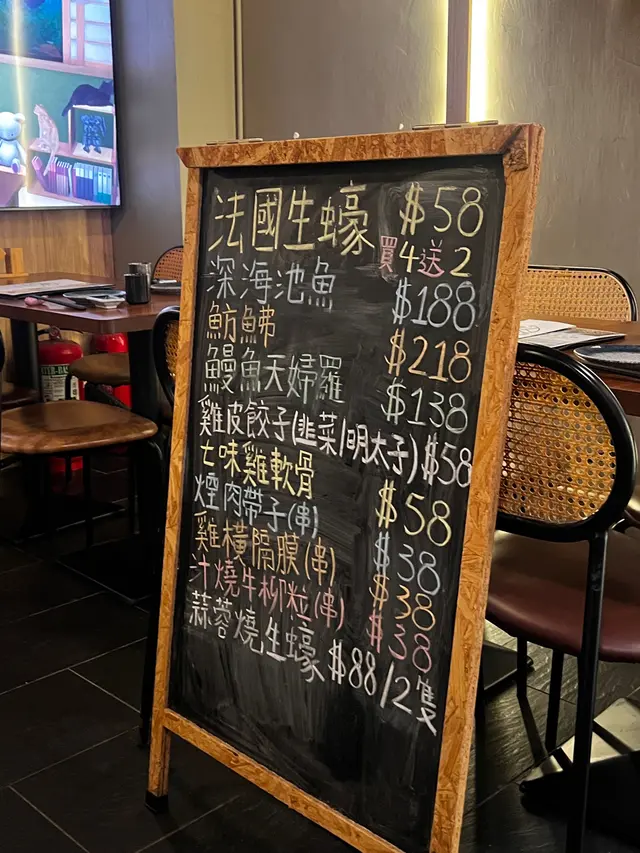 法國生蠔 $58
買4送2
深海池魚 $188
魴鮄 $218
鰻魚天婦羅 $138
雞皮餃子(韭菜/明太子) $58
七味雞軟骨 $58
煙肉帶子(串) $38
雞橫隔膜(串) $38
汁燒牛柳粒(串) $38
蒜蓉燒生蠔 $88/2隻